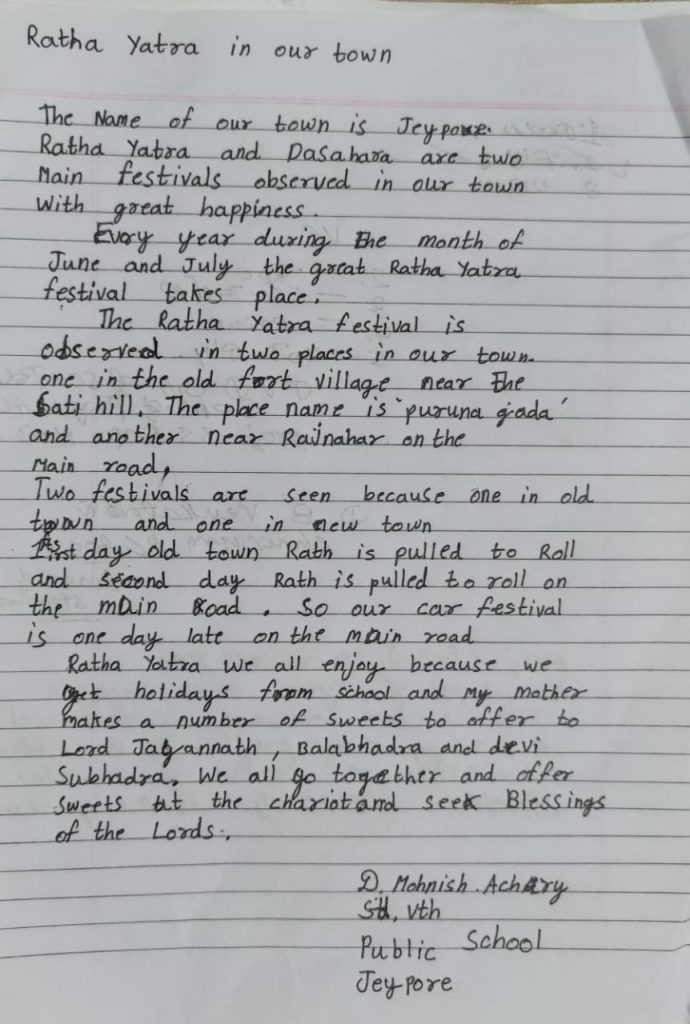 Ratha Yatra in our town
The Name of our town is Jeypore.
Ratha Yatra and Dasahara are two
Main festivals observed in our town
With great happiness.
Every year during the month of
June and July the great Ratha Yatra
festival takes place.
The Ratha Yatra festival is
observed in two places in our town.
one in the old fort village near the
Sati hill. The place name is 'puruna gada'
and another near Rajnahar on the
Main road,
Two festivals are seen because one in old
town and one in new town
First day old town Rath is pulled to Roll
and second day Rath is pulled to roll on
the main Road. So our car festival
is one day late on the main road
Ratha Yatra we all enjoy because we
get holidays from school and My mother
makes a number of sweets to offer to
Lord Jagannath, Balabhadra and devi
Subhadra. We all go together and offer
Sweets at the chariot and seek Blessings
of the Lords.
D. Mohnish. Achary
Std, Vth
Public School
Jeypore